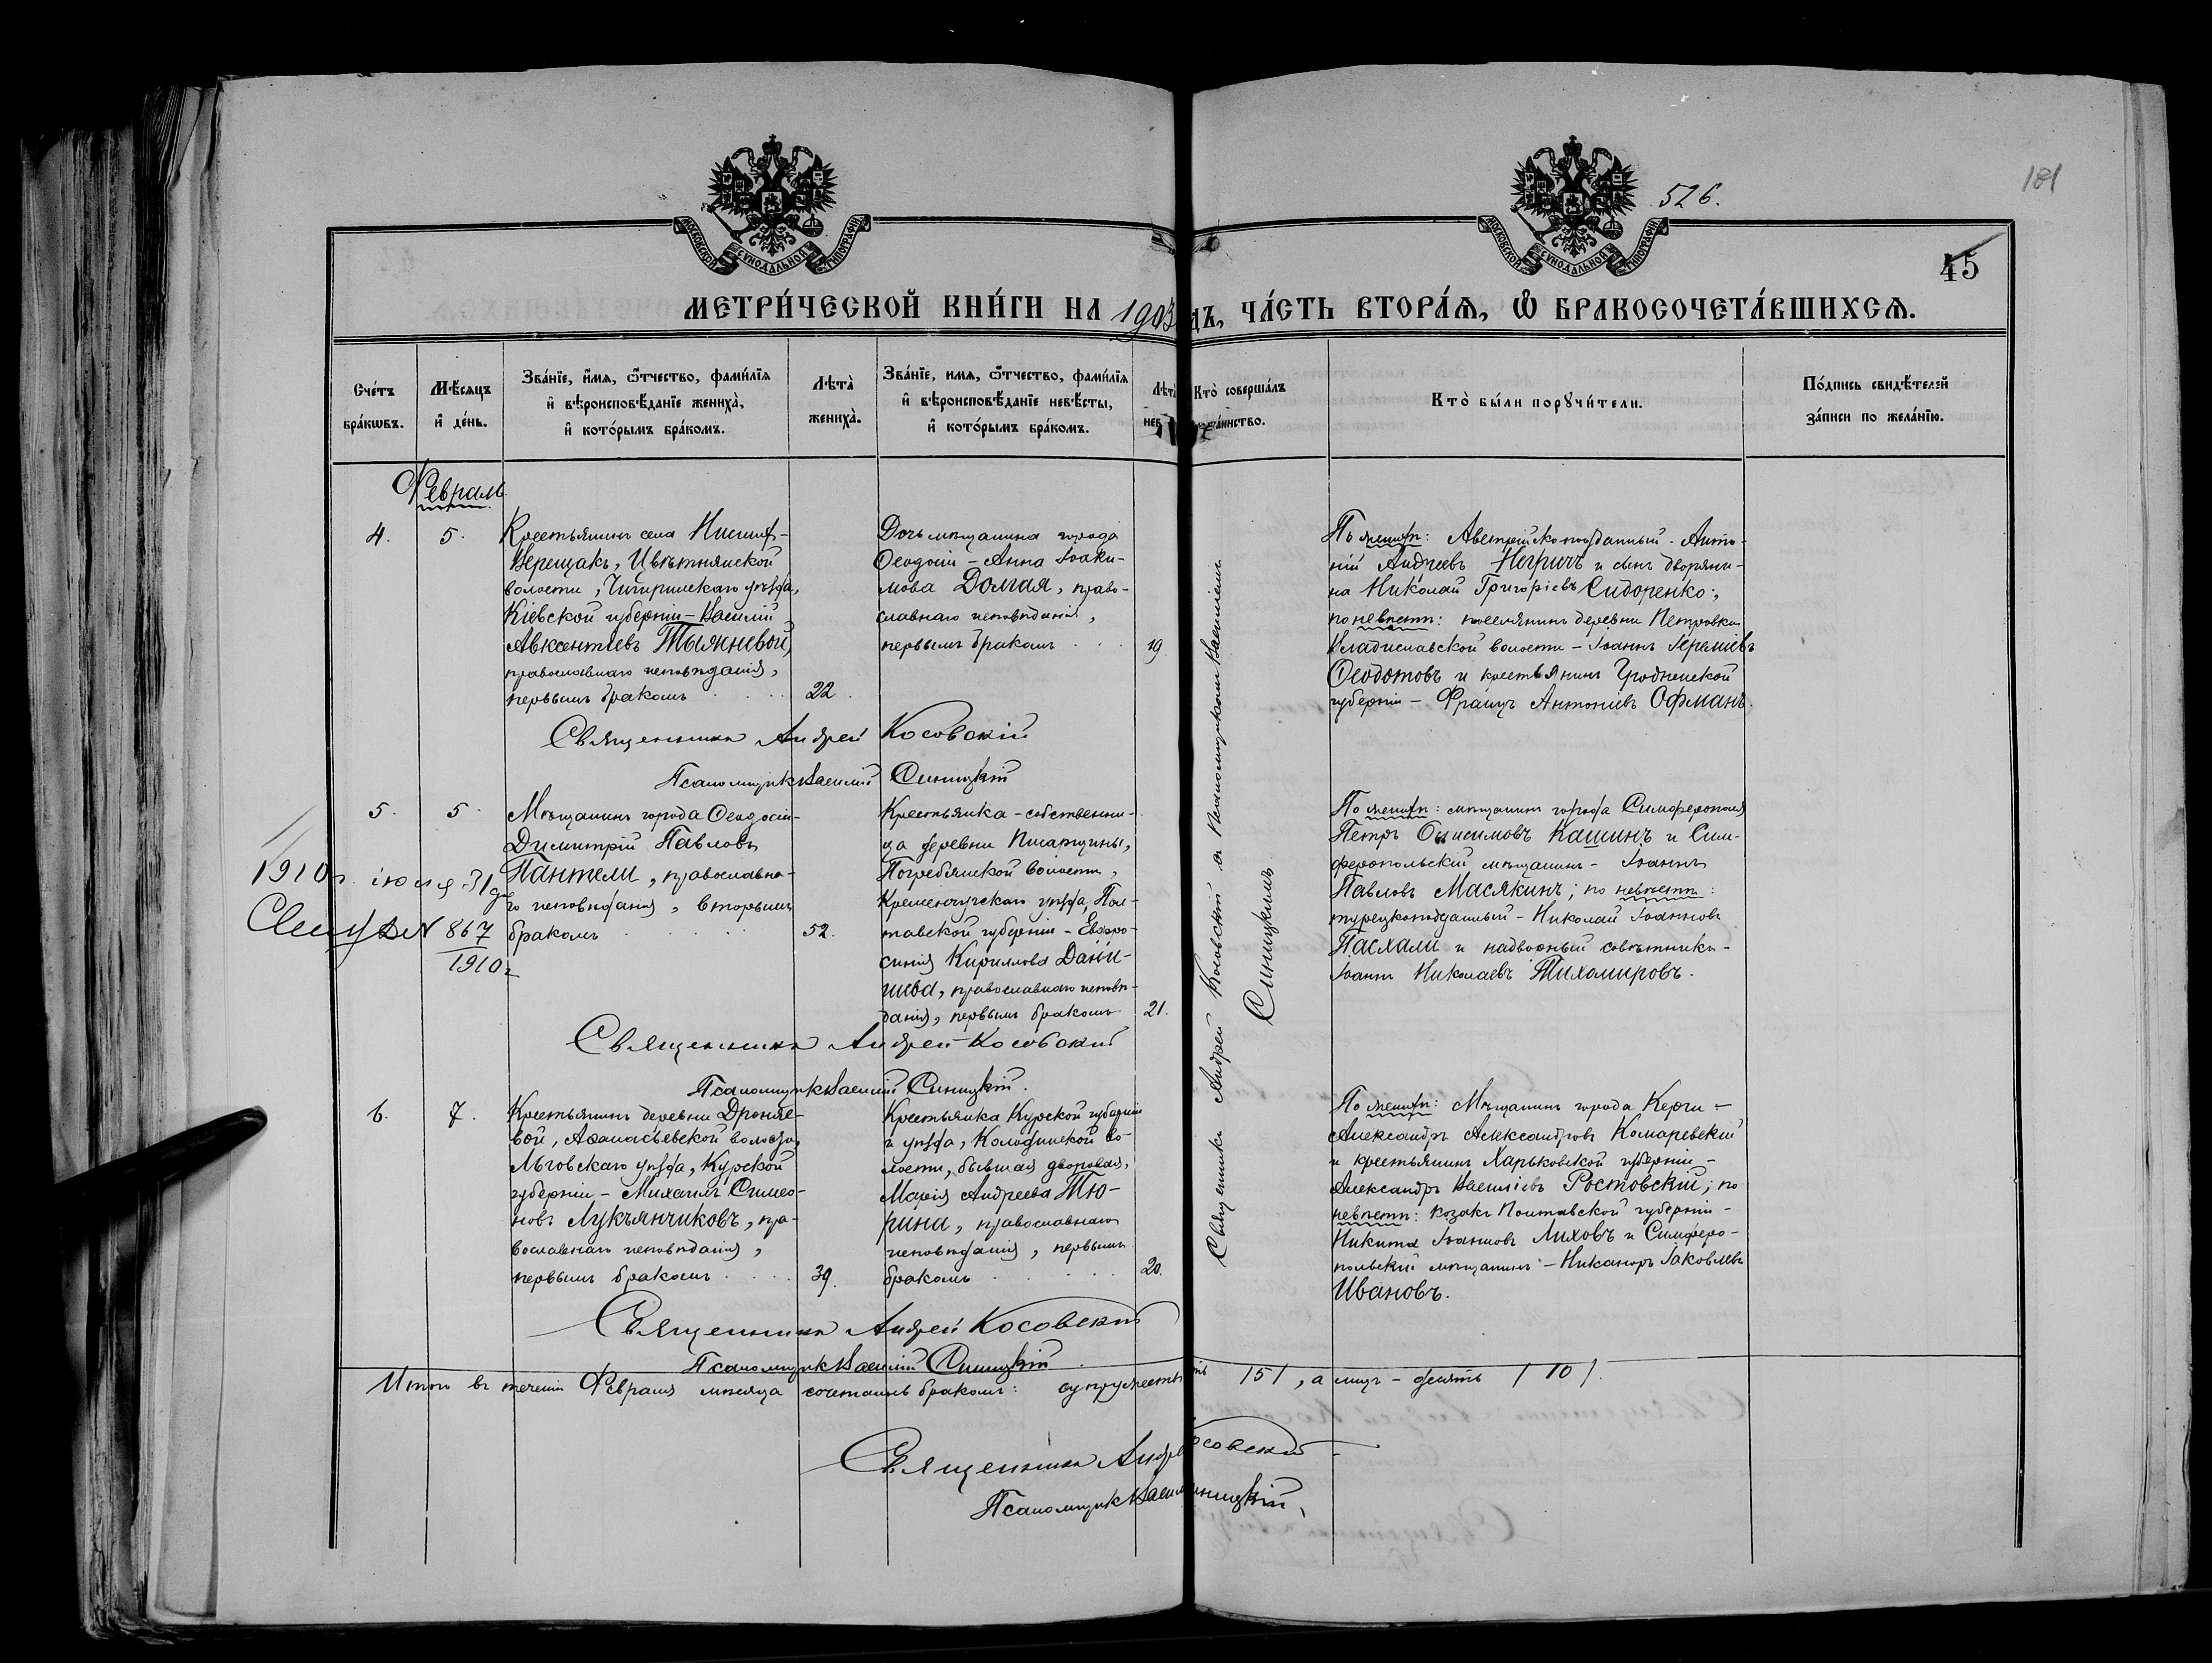 МОСКОВСКОЙ СѴНОДАЛЬНОЙ ТИПОГРАФІИ
МОСКОВСКОЙ СѴНОДАЛЬНОЙ ТИПОГРАФІИ
526.
181
45
МЕТРИ́ЧЕСКОЙ КНИ́ГИ НА 1903
ДЪ, ЧА́СТЬ ВТОРА́Я, Ѿ БРАКОСОЧЕТА́ВШИХСЯ.
Сче́тъ
бра́кѡвъ.
Мѣ́сяцъ
и҆ де́нь.
Зва́нїе, и҆́мя, ѻ҆́тчество, фами́лїя
и҆ вѣроисповѣ́данїе жениха̀,
и҆ кото́рымъ бра́комъ.
Лѣта̀
жениха̀.
Зва́нїе, имя, ѻ҆́тчество, фами́лїя
и҆ вѣроисповѣ́данїе невѣ́сты,
и҆ кото́рымъ бра́комъ.
Лѣта
нев
Кто̀ соверша́лъ
та́инство.
Кто̀ бы́ли порꙋчи́тели.
По́дпись свидѣ́телей
за́писи по жела́нїю.
Февраль
4.
5.
Крестьянинъ села
Верещакъ, Цвѣтнянской
волости, Чигиринскаго уѣзда,
Кіевской губерніи – Василій
Авксентіевъ Тымневой,
православнаго исповѣданія,
первымъ бракомъ
22.
Дочь мѣщанина города
Ѳеодосіи – Анна Іоаки-
мова Долгая, право-
славнаго исповѣданія,
первымъ бракомъ
19.
По женихѣ: Австрійскоподданный – Анто-
ній Андреевъ Негричъ и сынъ дворяни-
на Николай Григоріевъ Сидоренко;
по невѣстѣ: поселянинъ деревни Петровки
Владиславской волости – Іоаннъ Іереміевъ
Ѳеодотовъ и крестьянинъ Гродненской
губерніи – Францъ Антоніевъ Офманъ.
Священникъ Андрей Косовскій
Псаломщикъ Василій Синицкій
5.
5.
Мѣщанинъ города Ѳеодосіи –
Димитрій Павловъ
Пантели, православна-
го исповѣданія, вторымъ
бракомъ
52.
1910 г. іюля 31 д
867
1910 г.
Крестьянка – собственни-
ца деревни Писарщины,
Погребянской волости,
Кременчугскаго уѣзда, Пол-
тавской губерніи – Евфро-
синія Кириллова Дани-
шева, православнаго исповѣ-
данія, первымъ бракомъ
21.
По женихѣ: мѣщанинъ города Симферополя
Петръ Онисимовъ Кашинъ и Сим-
феропольскій мѣщанинъ – Іоаннъ
Павловъ Масякинъ; по невѣстѣ:
турецкоподданный – Николай Іоанновъ
Пасхали и надворный совѣтникъ –
Іоаннъ Николаевъ Тихомировъ.
Священникъ Андрей Косовскій
Псаломщикъ Василій Синицкій.
6.
7.
Крестьянинъ деревни Дроняе-
вой, Аѳанасьевской волости,
Льговскаго уѣзда, Курской
губерніи – Михаилъ Симео-
новъ Лукъянчиковъ, пра-
вославнаго исповѣданія,
первымъ бракомъ
39.
Крестьянка Курской губерніи
и уѣзда, во-
лости, бывшая дворовая,
Марія Андреева Тю-
рина, православнаго
исповѣданія, первымъ
бракомъ
20.
По женихѣ: Мѣщанинъ города Керчи –
Александръ Александровъ Комаревскій
и крестьянинъ Харьковской губерніи –
Александръ Василіевъ Ростовскій; по
невѣстѣ: козакъ Полтавской губерніи –
Никита Іоанновъ Лиховъ и Симферо-
польскій мѣщанинъ – Никаноръ Іаковлевъ
Ивановъ.
Священникъ Андрей Косовскій съ Псаломщикомъ Василіемъ
Синицкимъ
Священникъ Андрей Косовскій
Псаломщикъ Василій Синицкій
Итого въ теченіи Февраля мѣсяца сочетались бракомъ: супружествъ
/5/, а лицъ – десять /10/.
Священникъ Андрей Косовскій
Псаломщикъ Василій Синицкій,